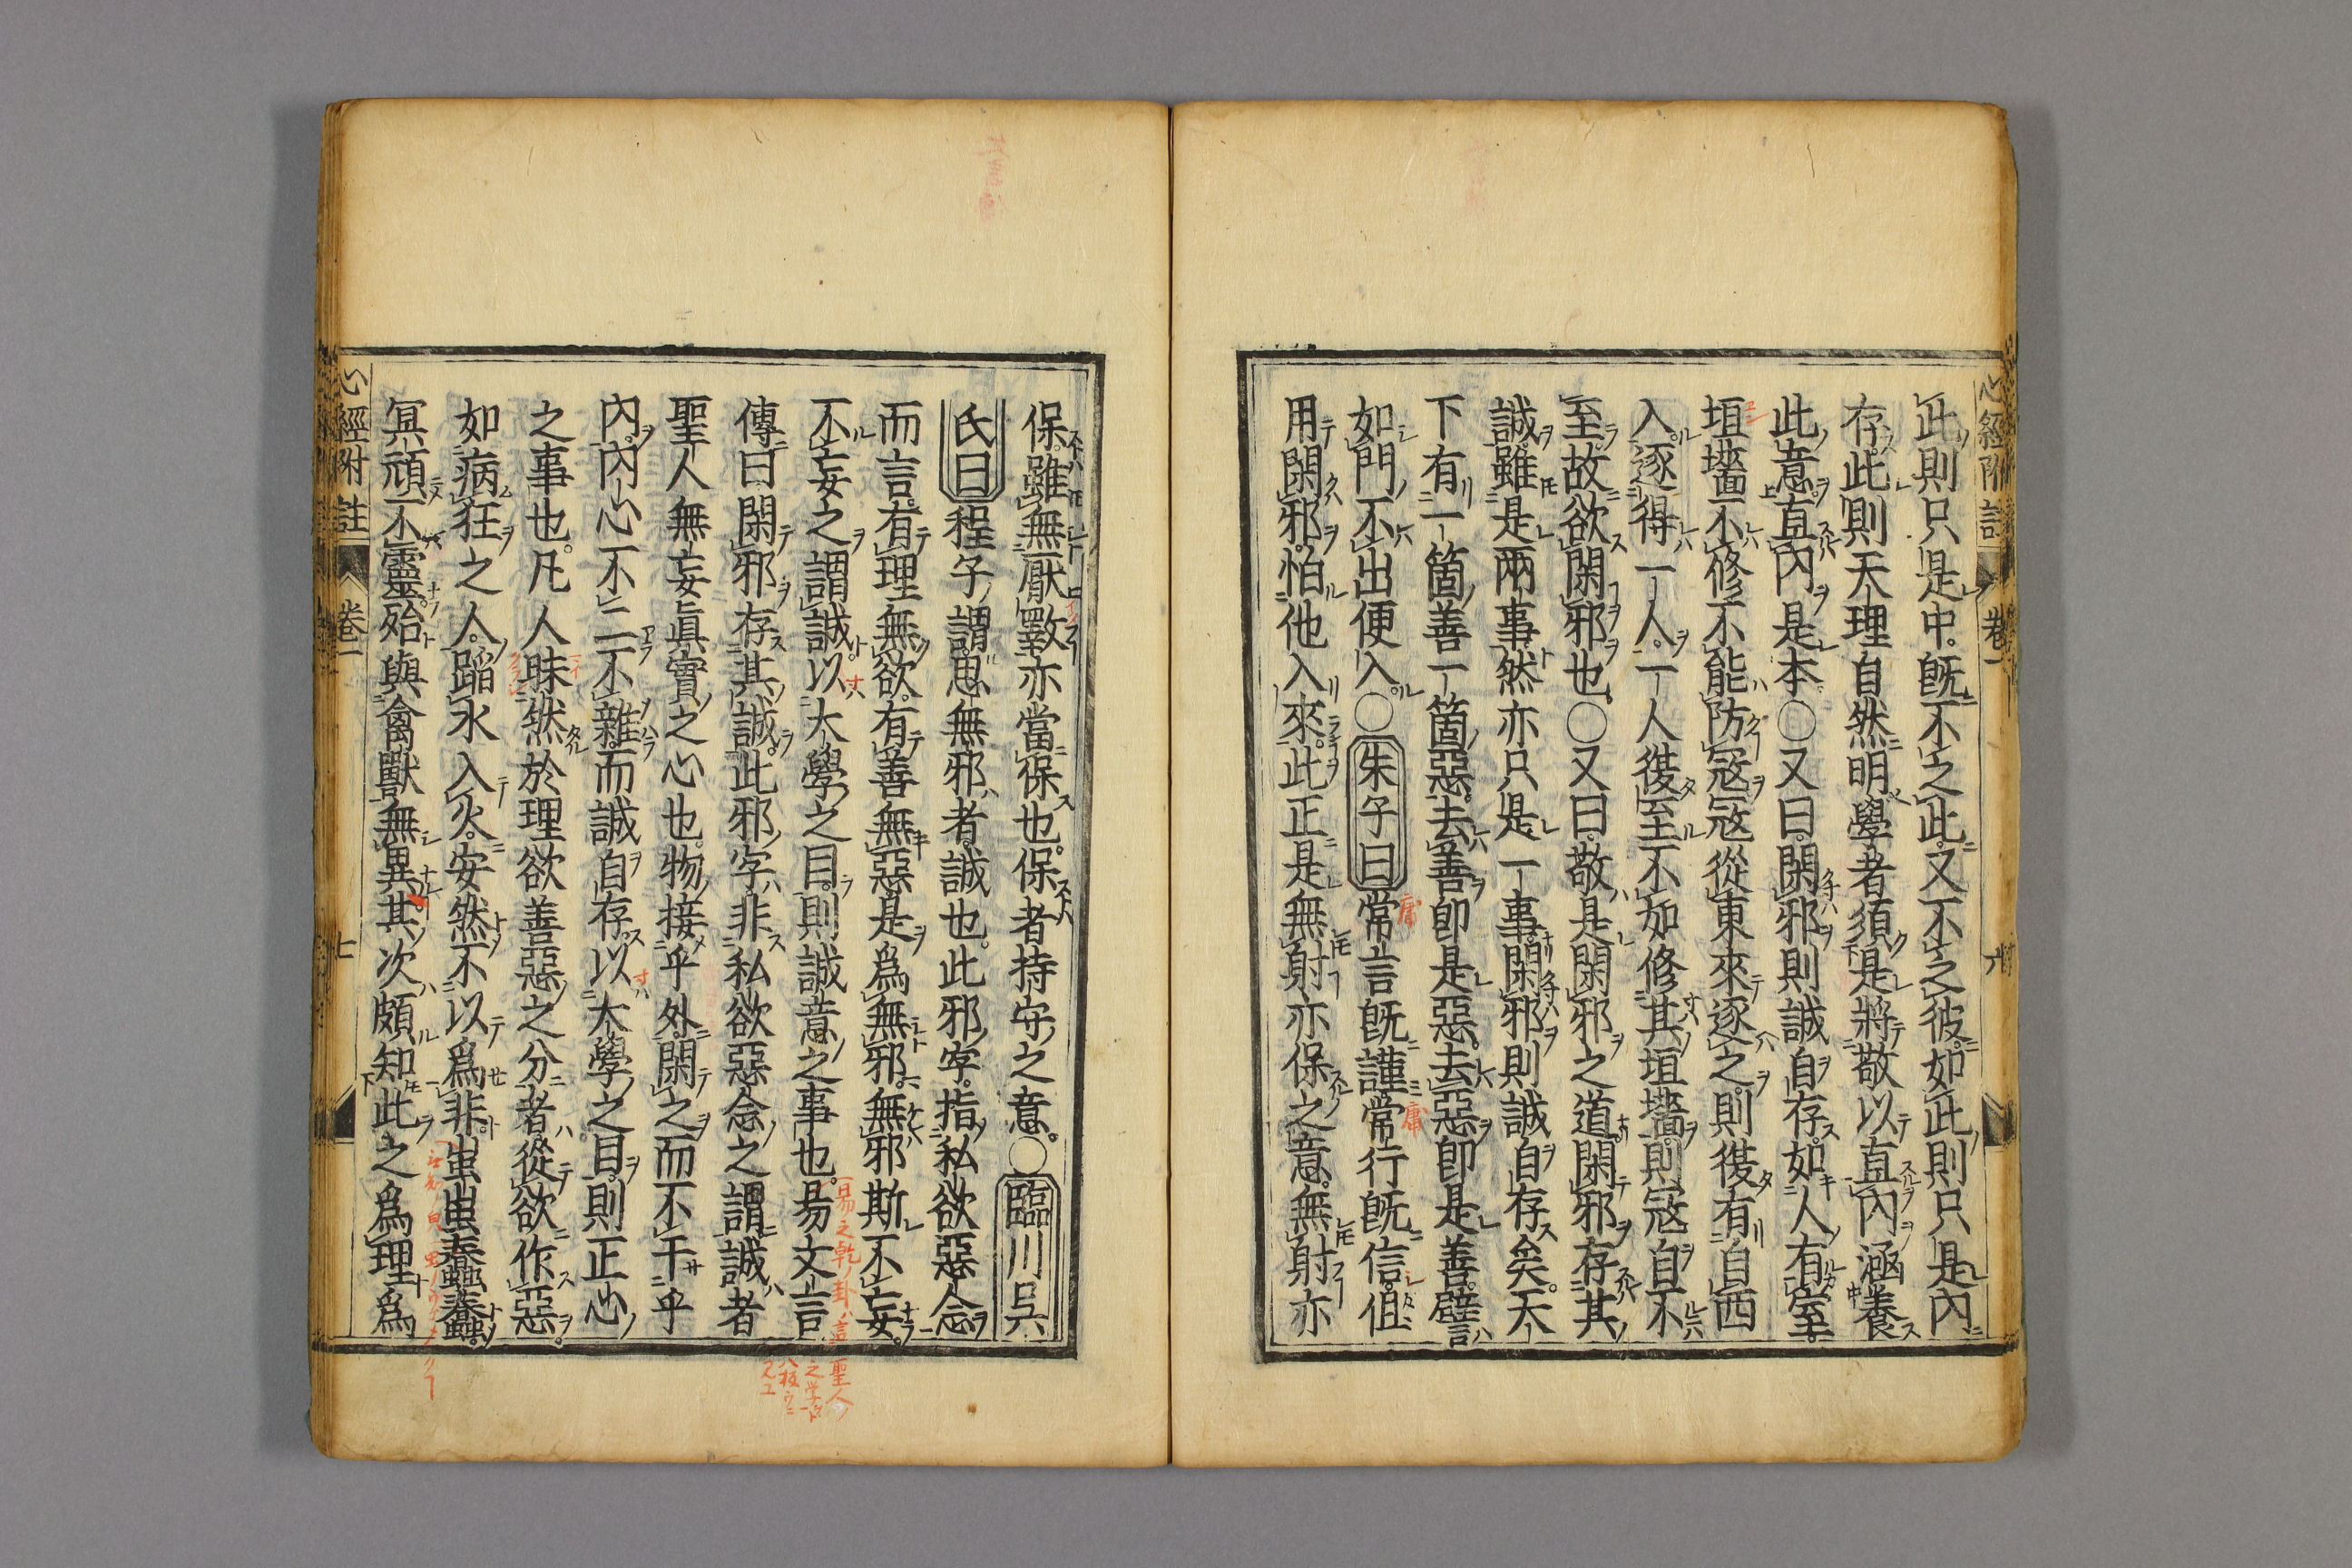 心經附註 卷一 六
此則只是中既不之此又不之彼如此則只是內
存此則天理自然明學者須是將敬以直內涵養
此意直內是本〇又曰閑邪則誠自存如人有室
垣墻不修不能防寇寇從東來逐之則復有自西
入逐得一人一人復至不如修其垣墻則寇自不
至故欲閑邪也〇又曰敬是閑邪之道閑邪存其
誠雖是兩事然亦只是一事閑邪則誠自存矣天
下有一箇善一箇惡去善即是惡去惡即是善譬
如門不出便入〇朱子曰常言既謹常行既信但
用閑邪怕他入來此正是無射亦保之意無射亦
保雖無厭斁亦當保也保者持守之意〇臨川吳
氏曰程子謂思無邪者誠也此邪字指私欲惡念
而言有理無欲有善無惡是爲無邪無邪斯不妄
不妄之謂誠以大學之目則誠意之事也易文言
傳曰閑邪存其誠此邪字非私欲惡念之謂誠者
聖人無妄眞實之心也物接乎外閑之而不干乎
內內心不二不雜而誠自存以大學之目則正心
之事也凡人昧然於理欲善惡之分者從欲作惡
如病狂之人蹈水入火安然不以爲非蚩蚩蠢蠢
冥頑不靈殆與禽獸無異其次頗知此之爲理爲
心經附註 卷一 七
庸
庸
易之乾卦言
聖人